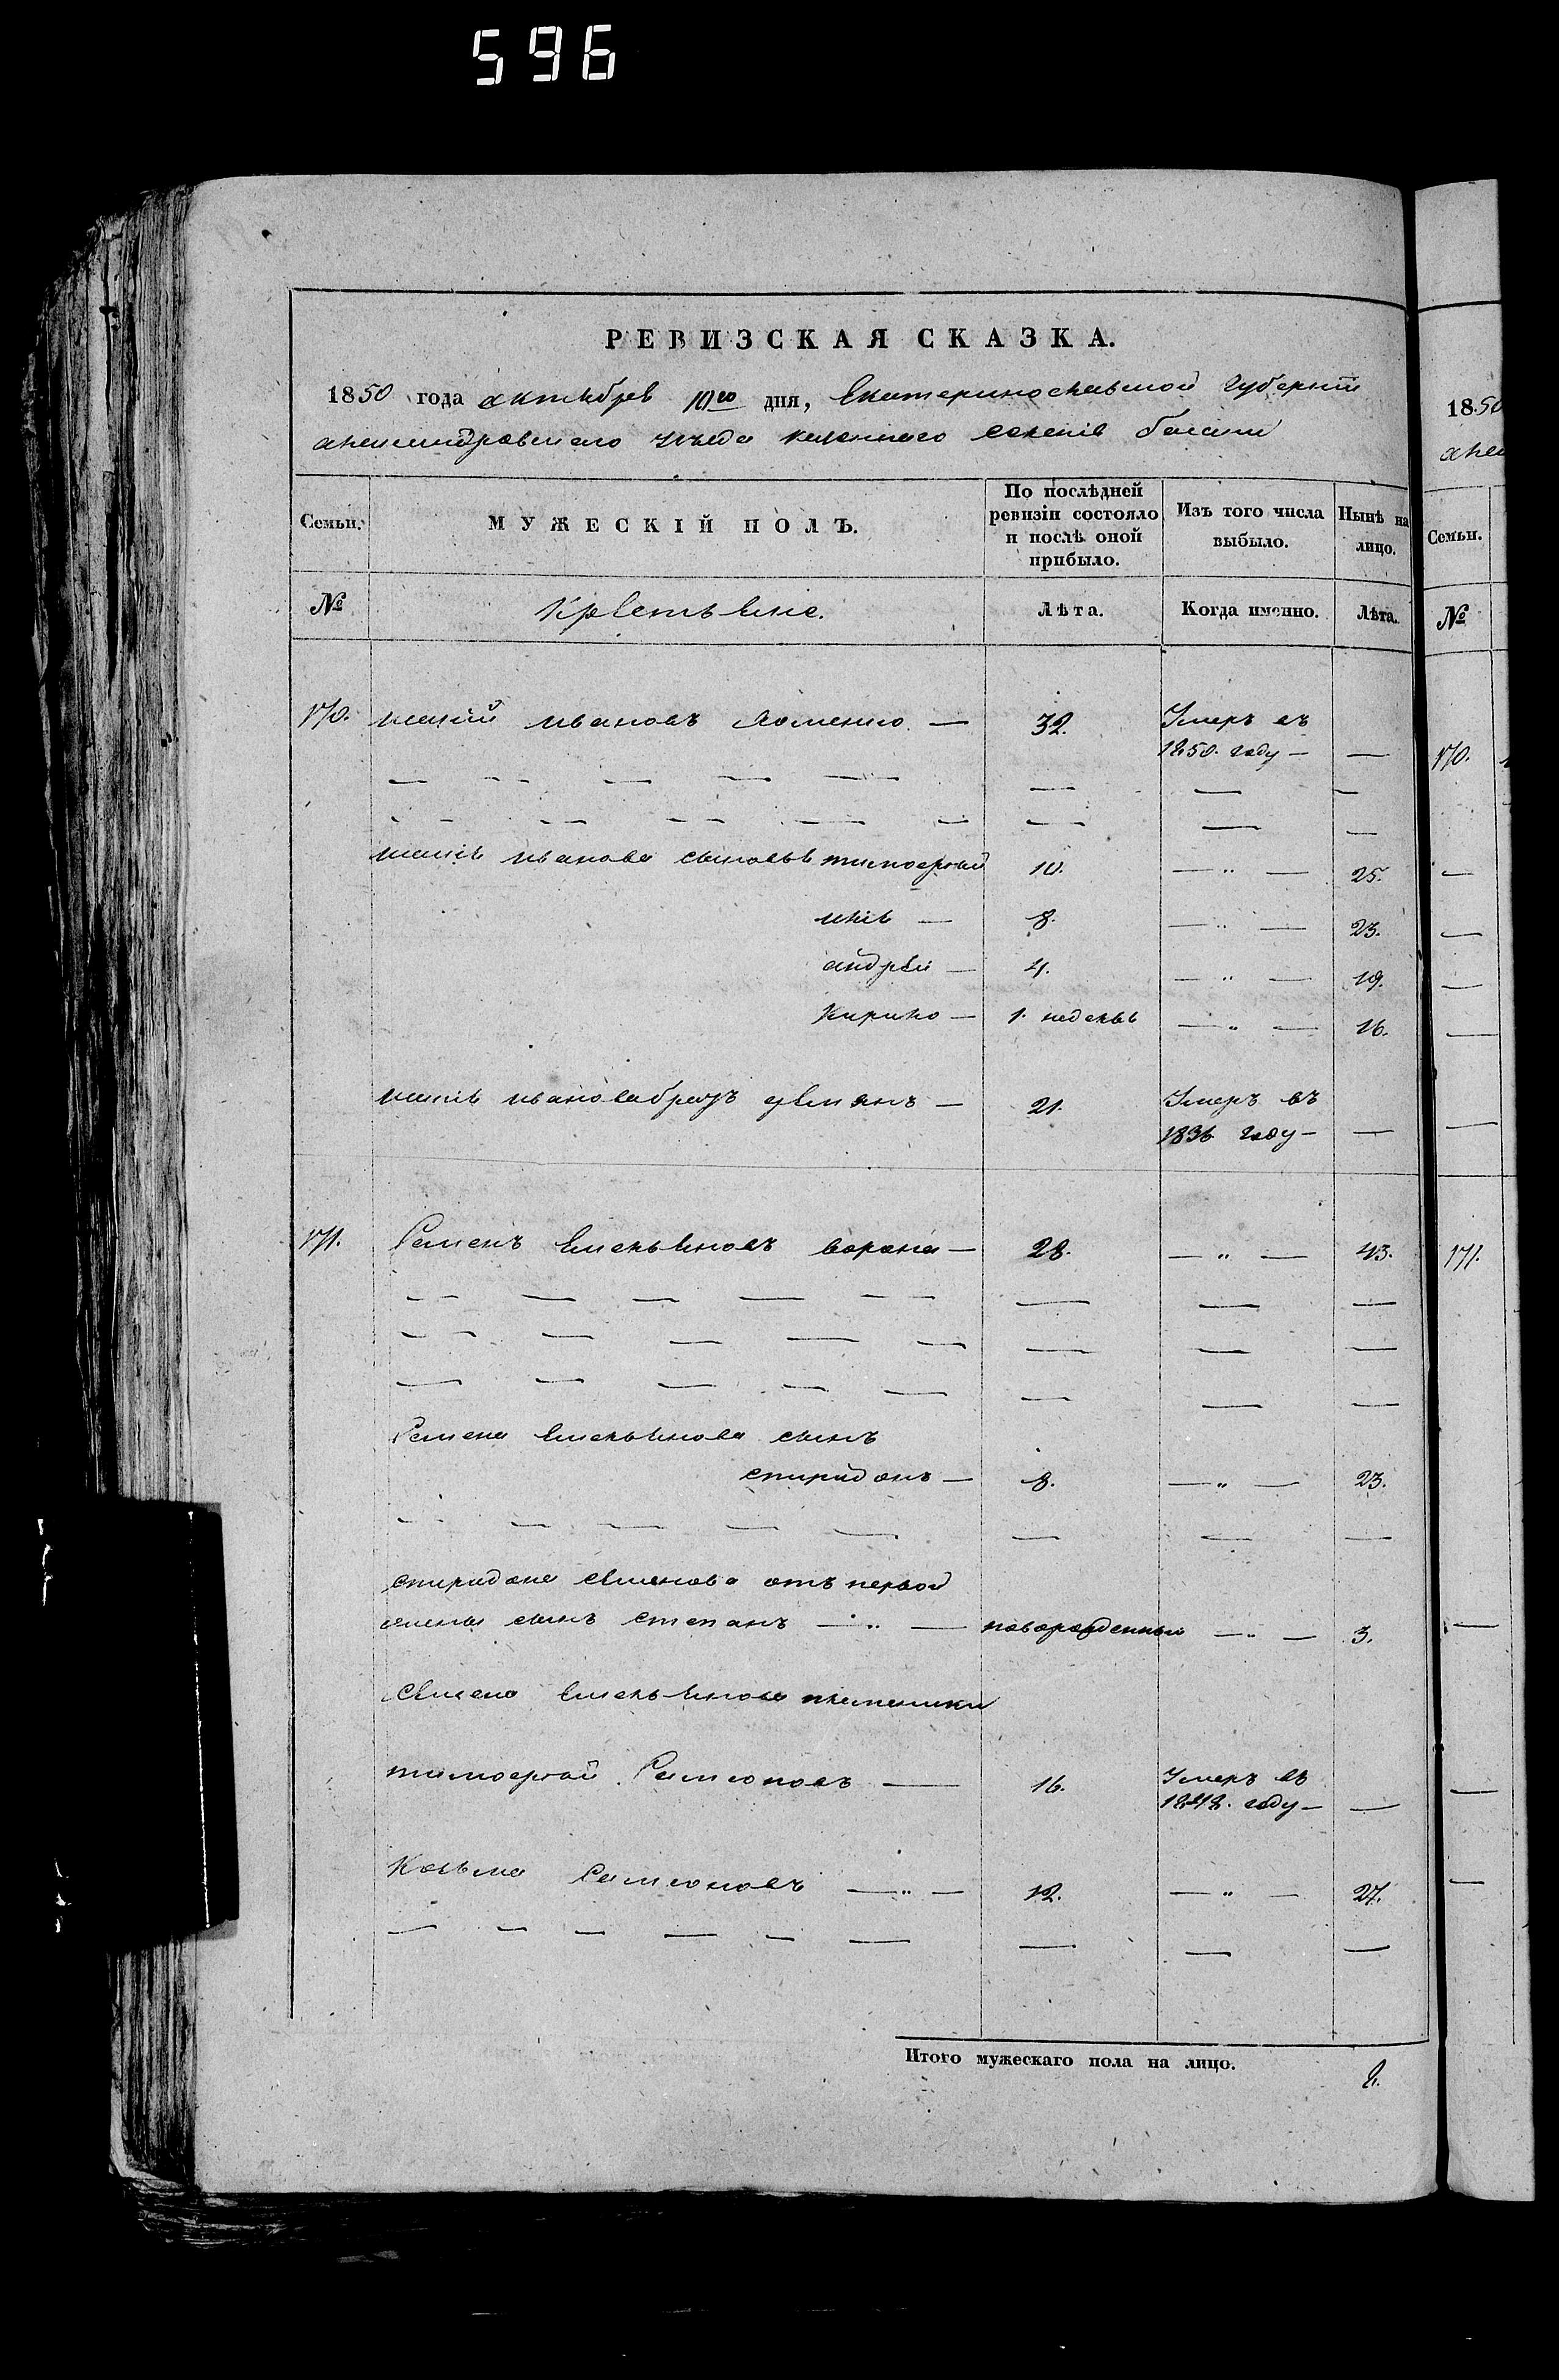 596
РЕВИЗСКАЯ СКАЗКА.
1850 года октября 10го дня, Екатеринославской губернии
александровского уезда казенного селения
Семьи. МУЖЕСКІЙ ПОЛЪ. По послѣдней ревизіи состояло и послѣ оной прибыло. Изъ того числа выбыло. Нынѣ на лицо.
№ Крестьяне. Лѣта. Когда именно. Лѣта.
170. Ивановъ 32. Умеръ въ
1850. году — —
Иванова сыновья тимофтей 10. — „ — 25.
илія — 8. — „ — 23.
андрей — 4. — „ — 19.
Кирило — 1. неделя — „ — 16.
Иванова братъ — 21. Умеръ въ
1836 году — —
171. Семенъ Емельяновъ ворона — 28. — „ — 43.
Семена Емельянова сынъ
спиридонъ — 8. — „ — 23.
спиридона семенова отъ первой
жены сынъ степанъ — „ — новорожденный — „ — 3.
Семена Емельянова племяники
тимофтей Самсоновъ — 16. Умеръ въ
1848. году — —
Козьма Самсоновъ — „ — 12. — „ — 27.
Итого мужескаго пола на лицо. 8.
1850
Семьи.
№
170.
171.